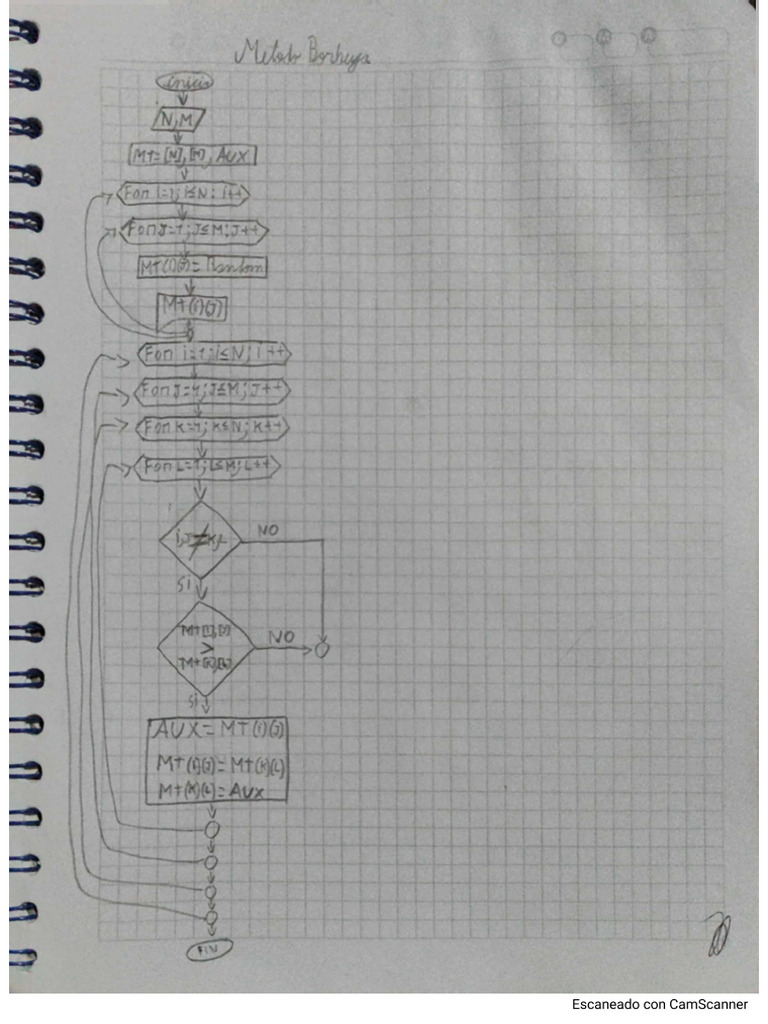 Metodo Borbuja
inicio
N,M
MT=[N],[M], AUX
For i=1; i≤N; i++
For J=1; J≤M; J++
MT(i)(J)= Random
MT(i)(J)
For i=1; i≤N; i++
For J=1; J≤M; J++
For K=1; K≤N; K++
For L=1; L≤M; L++
i,J ≠ K,L
NO
Si
MT[i],[J]
>
MT[K],[L]
NO
Si
AUX= MT(i)(J)
MT(i)(J)= MT(K)(L)
MT(K)(L)= AUX
FIN
Escaneado con CamScanner